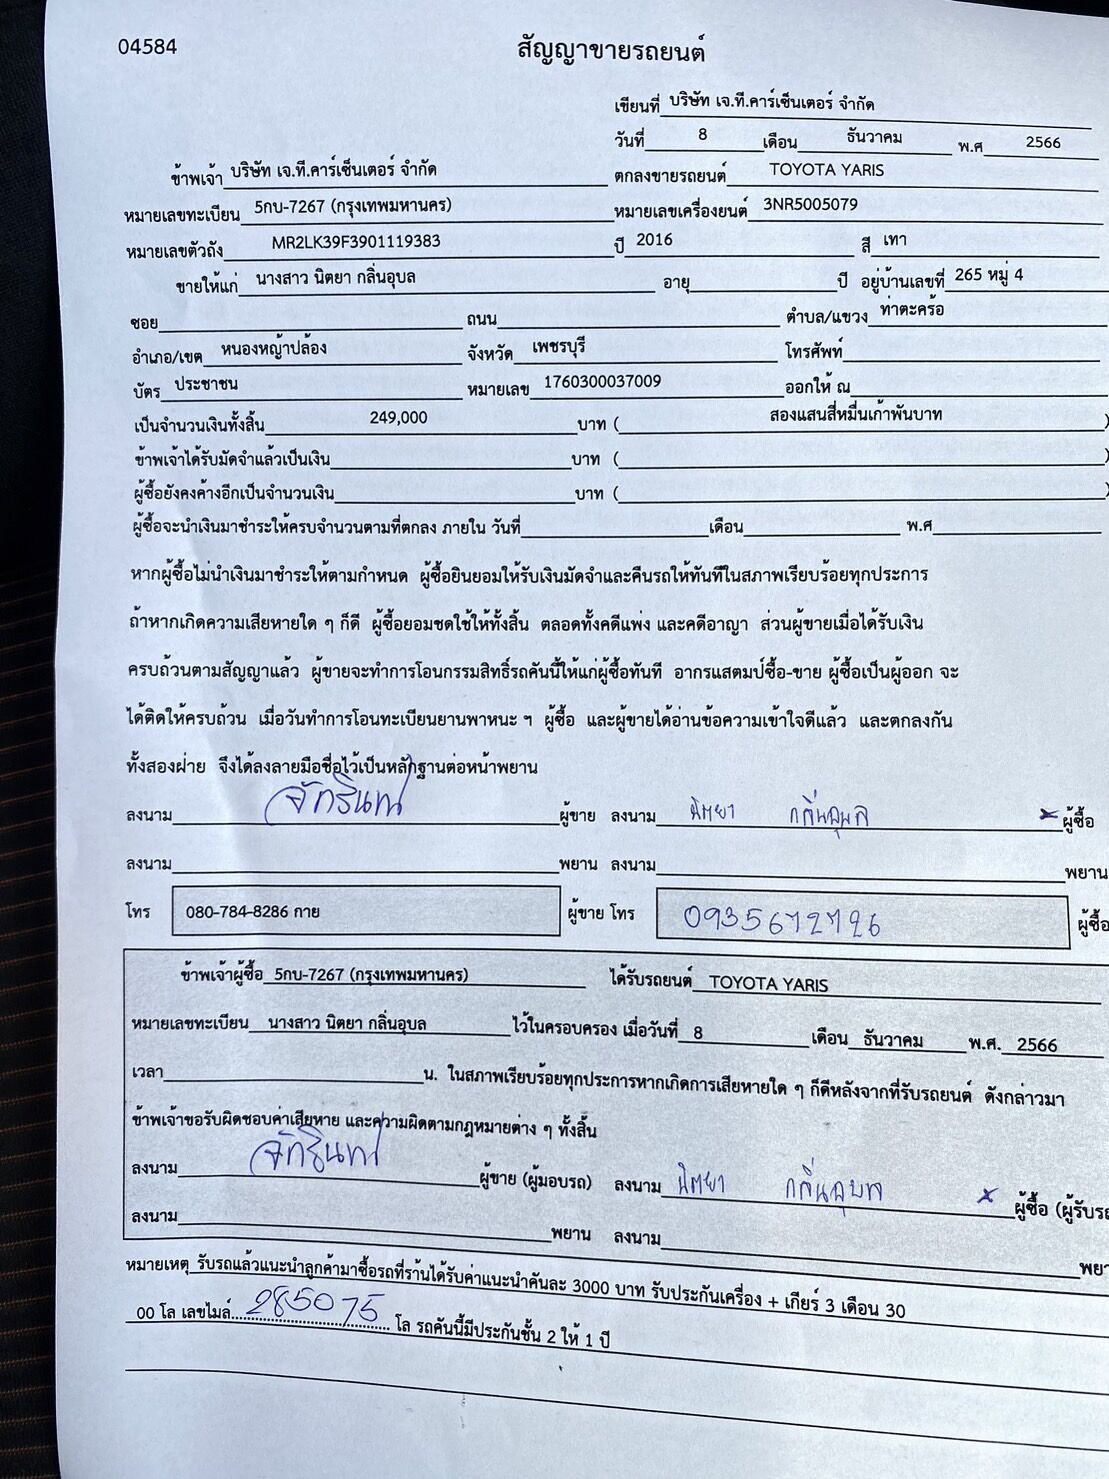 04584
สัญญาขายรถยนต์
เขียนที่ บริษัท เจ.ที.คาร์เซ็นเตอร์ จำกัด
วันที่ 8 เดือน ธันวาคม พ.ศ 2566
ข้าพเจ้า บริษัท เจ.ที.คาร์เซ็นเตอร์ จำกัด ตกลงขายรถยนต์ TOYOTA YARIS
หมายเลขทะเบียน 5กบ-7267 (กรุงเทพมหานคร) หมายเลขเครื่องยนต์ 3NR5005079
หมายเลขตัวถัง MR2LK39F3901119383 ปี 2016 สี เทา
ขายให้แก่ นางสาว นิตยา กลิ่นอุบล อายุ ปี อยู่บ้านเลขที่ 265 หมู่ 4
ซอย ถนน ตำบล/แขวง ท่าตะคร้อ
อำเภอ/เขต หนองหญ้าปล้อง จังหวัด เพชรบุรี โทรศัพท์
บัตร ประชาชน หมายเลข 1760300037009 ออกให้ ณ
เป็นจำนวนเงินทั้งสิ้น 249,000 บาท ( สองแสนสี่หมื่นเก้าพันบาท )
ข้าพเจ้าได้รับมัดจำแล้วเป็นเงิน บาท ( )
ผู้ซื้อยังคงค้างอีกเป็นจำนวนเงิน บาท ( )
ผู้ซื้อจะนำเงินมาชำระให้ครบจำนวนตามที่ตกลง ภายใน วันที่ เดือน พ.ศ
หากผู้ซื้อไม่นำเงินมาชำระให้ตามกำหนด ผู้ซื้อยินยอมให้รับเงินมัดจำและคืนรถให้ทันทีในสภาพเรียบร้อยทุกประการ
ถ้าหากเกิดความเสียหายใด ๆ ก็ดี ผู้ซื้อยอมชดใช้ให้ทั้งสิ้น ตลอดทั้งคดีแพ่ง และคดีอาญา ส่วนผู้ขายเมื่อได้รับเงิน
ครบถ้วนตามสัญญาแล้ว ผู้ขายจะทำการโอนกรรมสิทธิ์รถคันนี้ให้แก่ผู้ซื้อทันที อากรแสตมป์ซื้อ-ขาย ผู้ซื้อเป็นผู้ออก จะ
ได้ติดให้ครบถ้วน เมื่อวันทำการโอนทะเบียนยานพาหนะ ฯ ผู้ซื้อ และผู้ขายได้อ่านข้อความเข้าใจดีแล้ว และตกลงกัน
ทั้งสองฝ่าย จึงได้ลงลายมือชื่อไว้เป็นหลักฐานต่อหน้าพยาน
ลงนาม ผู้ขาย ลงนาม นิตยา กลิ่นอุบล x ผู้ซื้อ
ลงนาม พยาน ลงนาม พยาน
โทร 080-784-8286 กาย ผู้ขาย โทร 0935672726 ผู้ซื้อ
ข้าพเจ้าผู้ซื้อ 5กบ-7267 (กรุงเทพมหานคร) ได้รับรถยนต์ TOYOTA YARIS
หมายเลขทะเบียน นางสาว นิตยา กลิ่นอุบล ไว้ในครอบครอง เมื่อวันที่ 8 เดือน ธันวาคม พ.ศ. 2566
เวลา น. ในสภาพเรียบร้อยทุกประการหากเกิดการเสียหายใด ๆ ก็ดีหลังจากที่รับรถยนต์ ดังกล่าวมา
ข้าพเจ้าขอรับผิดชอบค่าเสียหาย และความผิดตามกฎหมายต่าง ๆ ทั้งสิ้น
ลงนาม ผู้ขาย (ผู้มอบรถ) ลงนาม นิตยา กลิ่นอุบล x ผู้ซื้อ (ผู้รับรถ
ลงนาม พยาน ลงนาม พยา
หมายเหตุ รับรถแล้วแนะนำลูกค้ามาซื้อรถที่ร้านได้รับค่าแนะนำคันละ 3000 บาท รับประกันเครื่อง + เกียร์ 3 เดือน 30
00 โล เลขไมล์ 285075 โล รถคันนี้มีประกันชั้น 2 ให้ 1 ปี